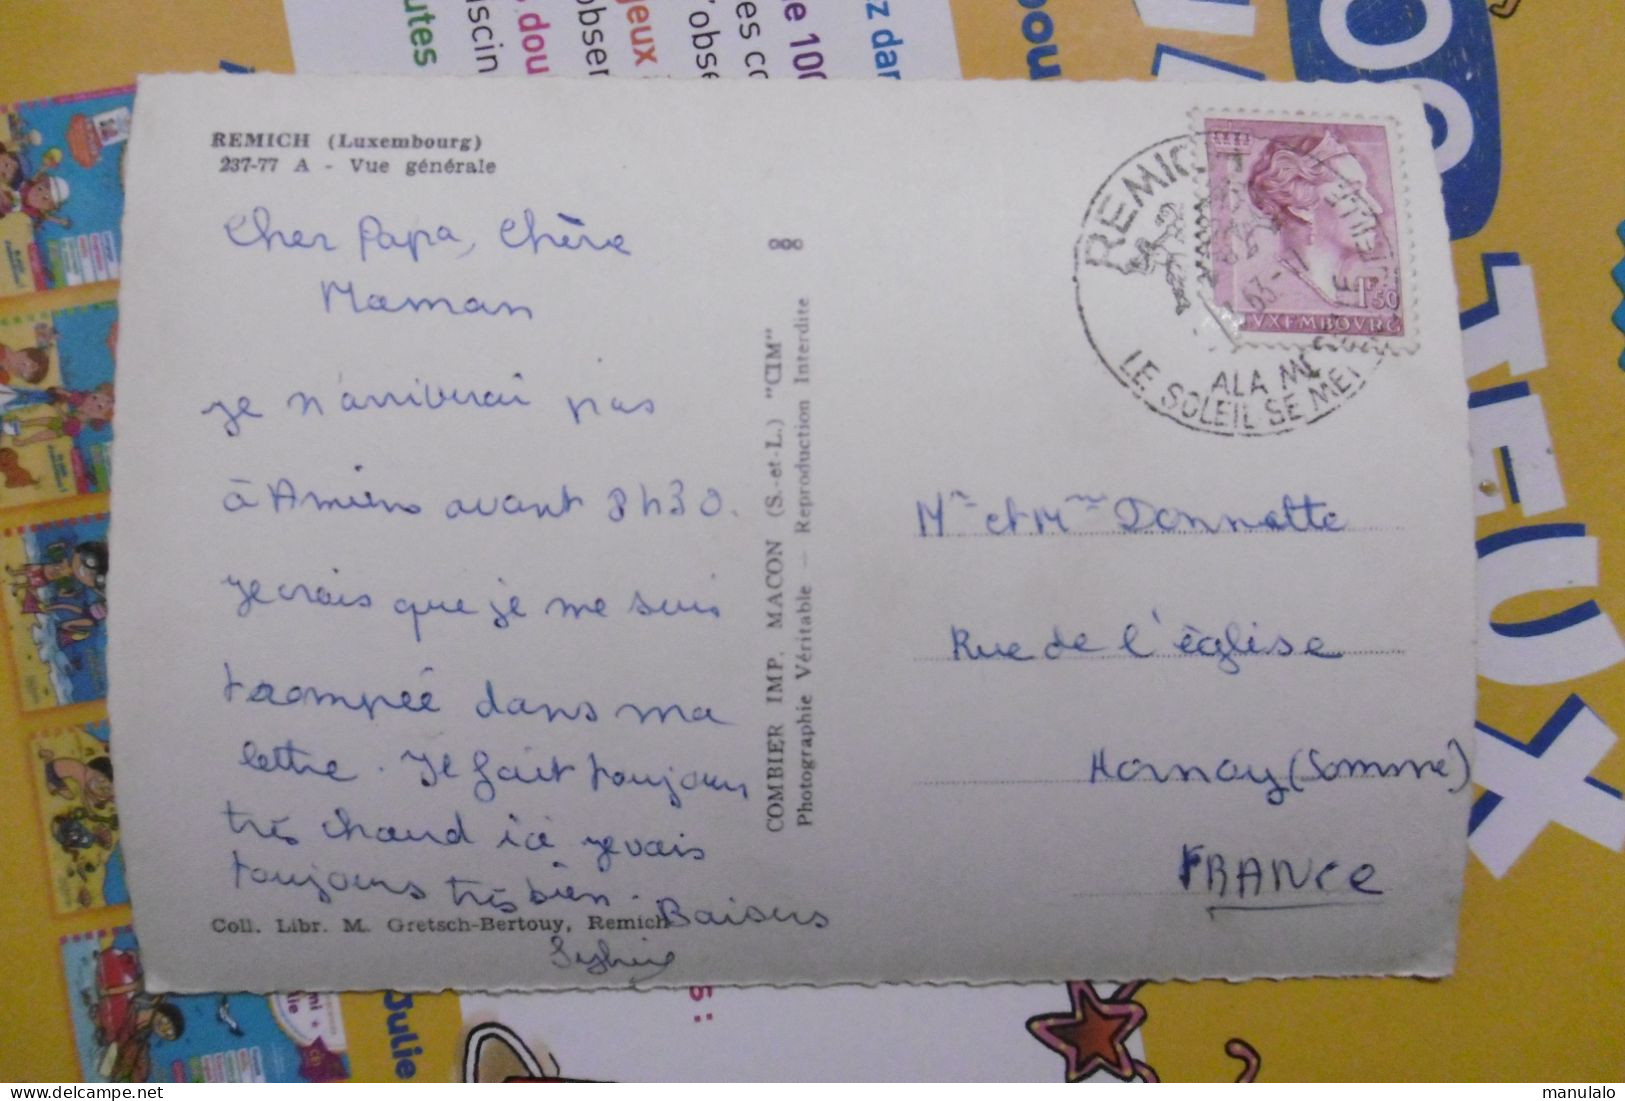 REMICH (Luxembourg)
237-77 A - Vue générale
Cher Papa, Chère
Maman
je n'arriverai pas
à Amiens avant 8h30.
je crois que je me suis
trompée dans ma
lettre. Il fait toujours
très chaud ici je vais
toujours très bien. Baisers
Sylvie
Coll. Libr. M. Gretsch-Bertouy, Remich
COMBIER IMP. MACON (S.-et-L.) "CIM"
Photographie Véritable — Reproduction Interdite
REMICH
LE SOLEIL SE MET
A LA
1F50
LVXEMBOVRG
Mr et Mme Donnette
Rue de l'église
Hornoy (Somme)
FRANCE
utes
dou
jeux
l'obse
100
z dan
pou
JEUX
Julie
manulalo